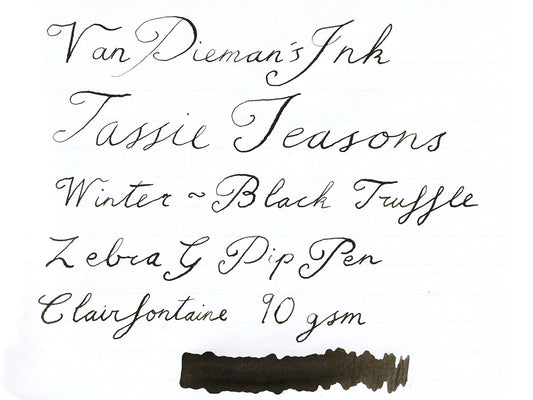 Van Dieman's Ink
Tassie Teasons
Winter ~ Black Truffle
Zebra G Dip Pen
Clairfontaine 90 gsm